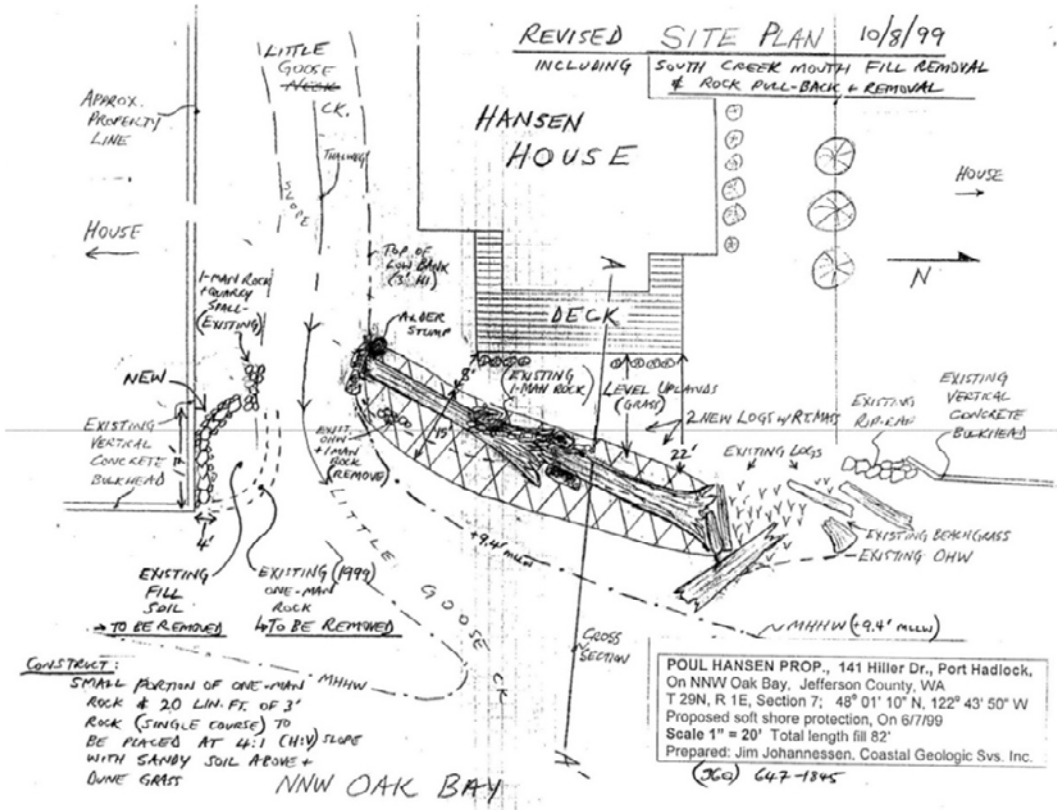 REVISED SITE PLAN 10/8/99
INCLUDING SOUTH CREEK MOUTH FILL REMOVAL
& ROCK PULL-BACK + REMOVAL
LITTLE
GOOSE
NECK
CK.
APPROX.
PROPERTY
LINE
THALWEG
SLOPE
HANSEN
HOUSE
HOUSE
HOUSE
N
TOP OF
LOW BANK
(3' HI)
1-MAN ROCK
+ QUARRY
SPALL
(EXISTING)
ALDER
STUMP
DECK
A
NEW
EXISTING
VERTICAL
CONCRETE
BULKHEAD
4'
8'
15'
(EXISTING
1-MAN ROCK)
LEVEL UPLANDS
(GRASS)
2 NEW LOGS W/RT.MASS
22'
EXIST.
OHW
+ 1 MAN
ROCK
(REMOVE)
EXISTING LOGS
EXISTING
RIP-RAP
EXISTING
VERTICAL
CONCRETE
BULKHEAD
EXISTING BEACHGRASS
EXISTING OHW
+9.4' MLLW
LITTLE GOOSE CK
EXISTING
FILL
SOIL
TO BE REMOVED
EXISTING (1999)
ONE-MAN
ROCK
TO BE REMOVED
~MHHW (+9.4' MLLW)
MHHW
CROSS
SECTION
A'
CONSTRUCT:
SMALL PORTION OF ONE-MAN
ROCK & 20 LIN. FT. OF 3'
ROCK (SINGLE COURSE) TO
BE PLACED AT 4:1 (H:V) SLOPE
WITH SANDY SOIL ABOVE +
DUNE GRASS
NNW OAK BAY
POUL HANSEN PROP., 141 Hiller Dr., Port Hadlock,
On NNW Oak Bay, Jefferson County, WA
T 29N, R 1E, Section 7; 48° 01' 10" N, 122° 43' 50" W
Proposed soft shore protection, On 6/7/99
Scale 1" = 20' Total length fill 82'
Prepared: Jim Johannessen, Coastal Geologic Svs. Inc.
(360) 647-1845